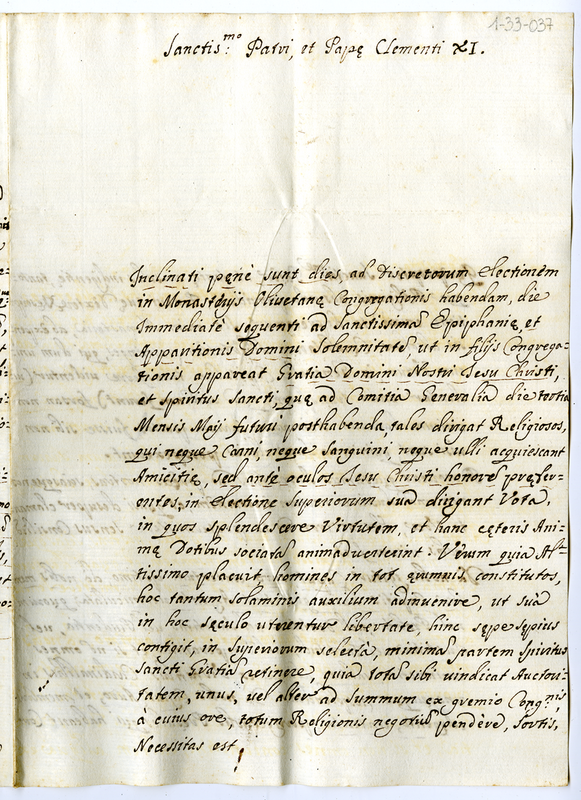 1-33-037
Sanctis:mo Patri, et Papę Clementi XI.
Inclinati penè sunt dies ad Discretorum Electionem
in Monasterijs Olivetanę Congregationis habendam, die
Immediatè sequenti ad Sanctissimā Epiphanię, et
Apparitionis Domini Solemnitatē, ut in filijs Congrega-
tionis appareat Gratia Domini Nostri Jesu Christi,
et Spiritus Sancti, quę ad Comitia Generalia die tertia
Mensis Maij futuri posthabenda, tales dirigat Religiosos,
qui neque Carni, neque Sanguini, neque ulli acquiescant
Amicitię, sed antè oculos Jesu Christi honorē pręfer-
entes, in Electione Superiorum suā dirigant Vota,
in quos Splendescere Virtutem, et hanc cęteris Ani-
mę Dotibus sociatā animadverterint. Verum quia Al-
tissimo placuit, homines in tot ęrumnis constitutos,
hoc tantum solaminis auxilium adinvenire, ut suā
in hoc sęculo utrentur libertate, hinc sępe sępius
contigit, in superiorum selectā, minimā partem Spiritus
Sancti Gratiā retinere, quia totā sibi vindicat Auctori-
tatem, unus, vel alter ad summum ex gremio Cong:nis,
à cuius ore, totum Religionis negotiū pendère, sortis,
Necessitas est